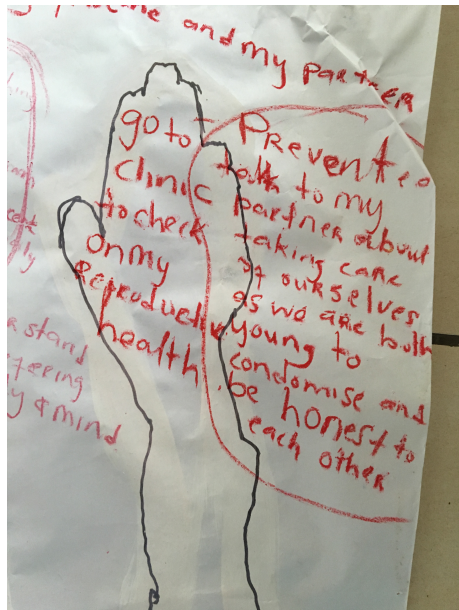 and my partner
go to
clinic
to check
on my
reproductive
health
Prevented
talk to my
partner about
taking care
of ourselves
as we are both
young to
condomise and
be honest to
each other
stand
y & mind